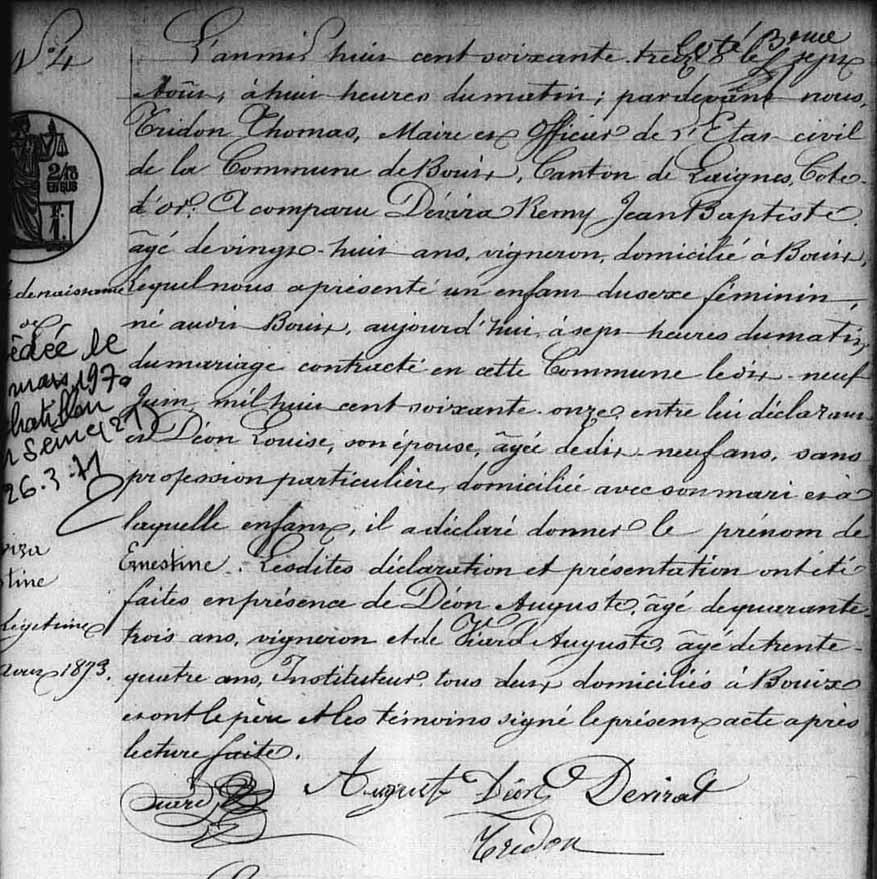 N° 4
Coté 3eme
L'an mil huit cent soixante-treize le sept
Août, à huit heures du matin; par devant nous,
Tridon Thomas, Maire et Officier de l'Etat civil
de la Commune de Bouix, Canton de Laignes, Cote-
d'or. A comparu Dévira Remy Jean Baptiste,
âgé de vingt-huit ans, vigneron, domicilié à Bouix,
lequel nous a présenté un enfant du sexe féminin,
né audit Bouix, aujourd'hui, à sept heures du matin,
du mariage contracté en cette Commune le dix-neuf
Juin mil huit cent soixante-onze, entre lui déclarant
et Déon Louise, son épouse, âgée de dix-neuf ans, sans
profession particulière, domiciliée avec son mari et à
laquelle enfant, il a déclaré donner le prénom de
Ernestine. Lesdites déclaration et présentation ont été
faites en présence de Déon Auguste, âgé de quarante-
trois ans, vigneron et de Viard Auguste, âgé de trente-
quatre ans, Instituteur, tous deux domiciliés à Bouix
et ont le père et les témoins signé le présent acte après
lecture faite.
2/10
EN SUS
de naissance
de
édée le
mars 1970
hatillon
Seine (21)
26.3.71
stine
Légitime
Août 1873.
Viard
August Déon Devirat
Tridon